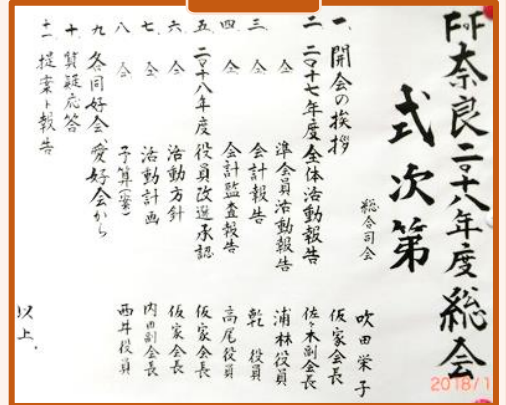 F・F奈良二〇十八年度総会
式次第
総合司会 吹田栄子
一、開会の挨拶 仮家会長
二、二〇十七年度全体活動報告 佐々木副会長
仝 準会員活動報告 浦林役員
三、仝 会計報告 乾 役員
四、仝 会計監査報告 高尾役員
五、二〇十八年度役員改選承認 仮家会長
六、仝 活動方針 仮家会長
七、仝 活動計画 内田副会長
八、仝 予算(案) 西井役員
九、各同好会、愛好会から
十、質疑応答
十一、提案ト報告
以上.
2018/1